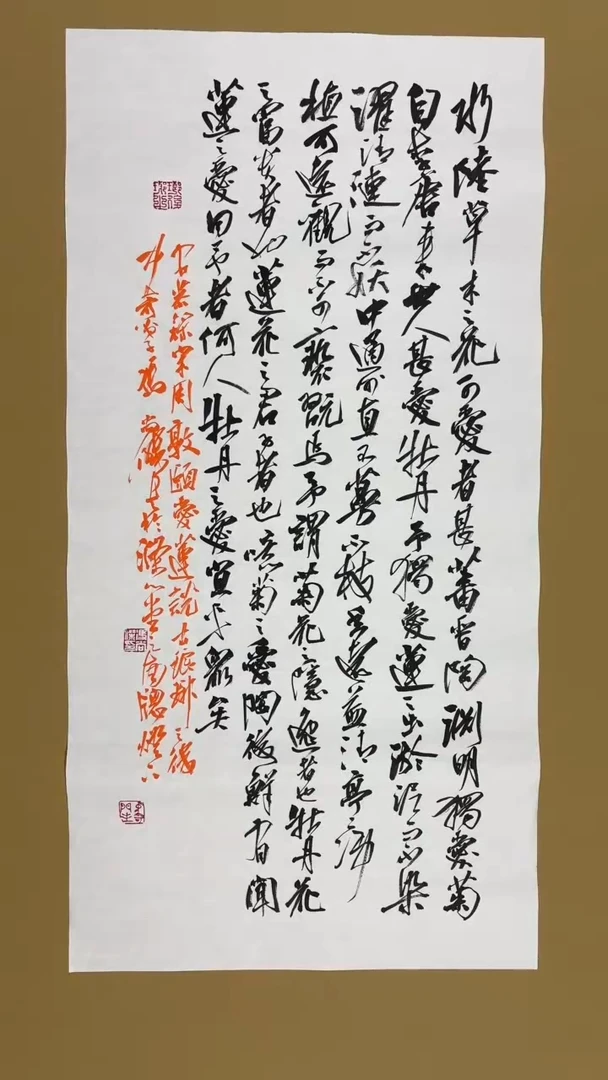 水陸草木之花可愛者甚蕃晉陶渊明獨愛菊
自李唐来世人甚愛牡丹予獨愛蓮之出淤泥而不染
濯清漣而不妖中通外直不蔓不枝香遠益清亭亭净
植可遠觀而不可褻翫焉予謂菊花之隱逸者也牡丹花
之富貴者也蓮花之君子者也噫菊之愛陶後鮮有聞
蓮之愛同予者何人牡丹之愛宜乎衆矣
宋周敦頤愛蓮説